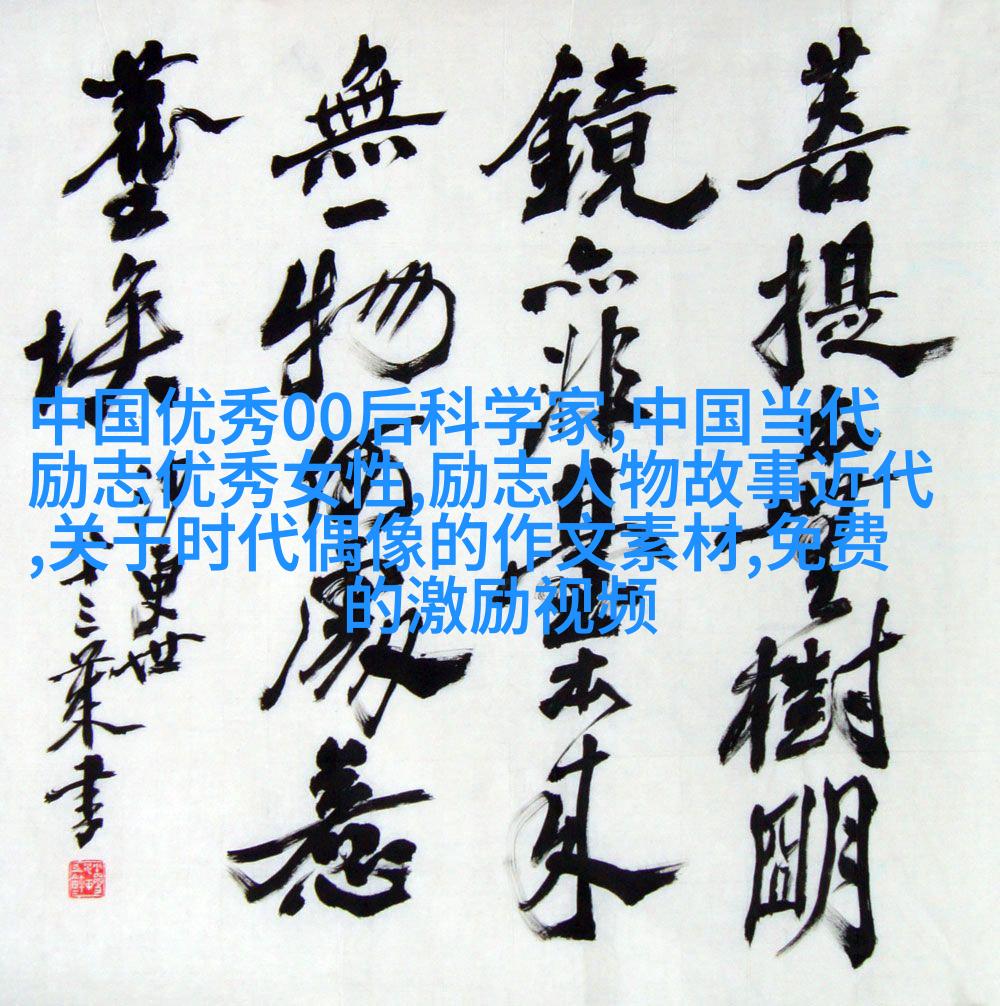 中国优秀00后科学家,中国当代
励志优秀女性,励志人物故事近代
,关于时代偶像的作文素材,免费
的激励视频
菩提本樹明
鏡亦非臺本来
無一物何處惹
塵埃